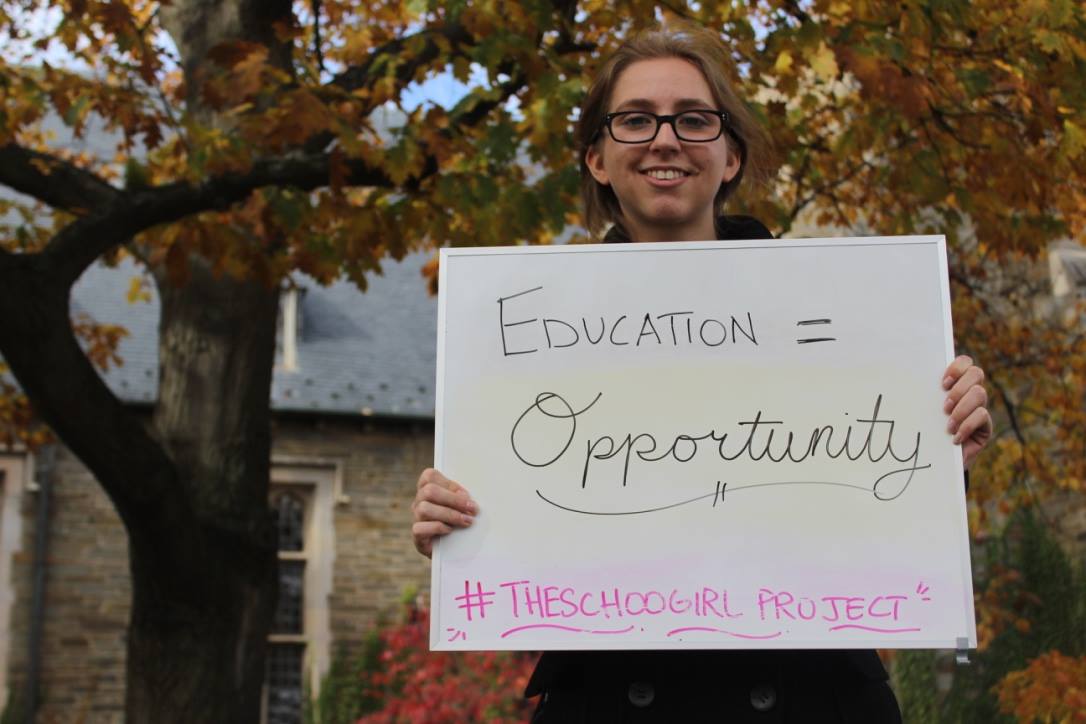 EDUCATION =
Opportunity
"# THESCHOOGIRL PROJECT"